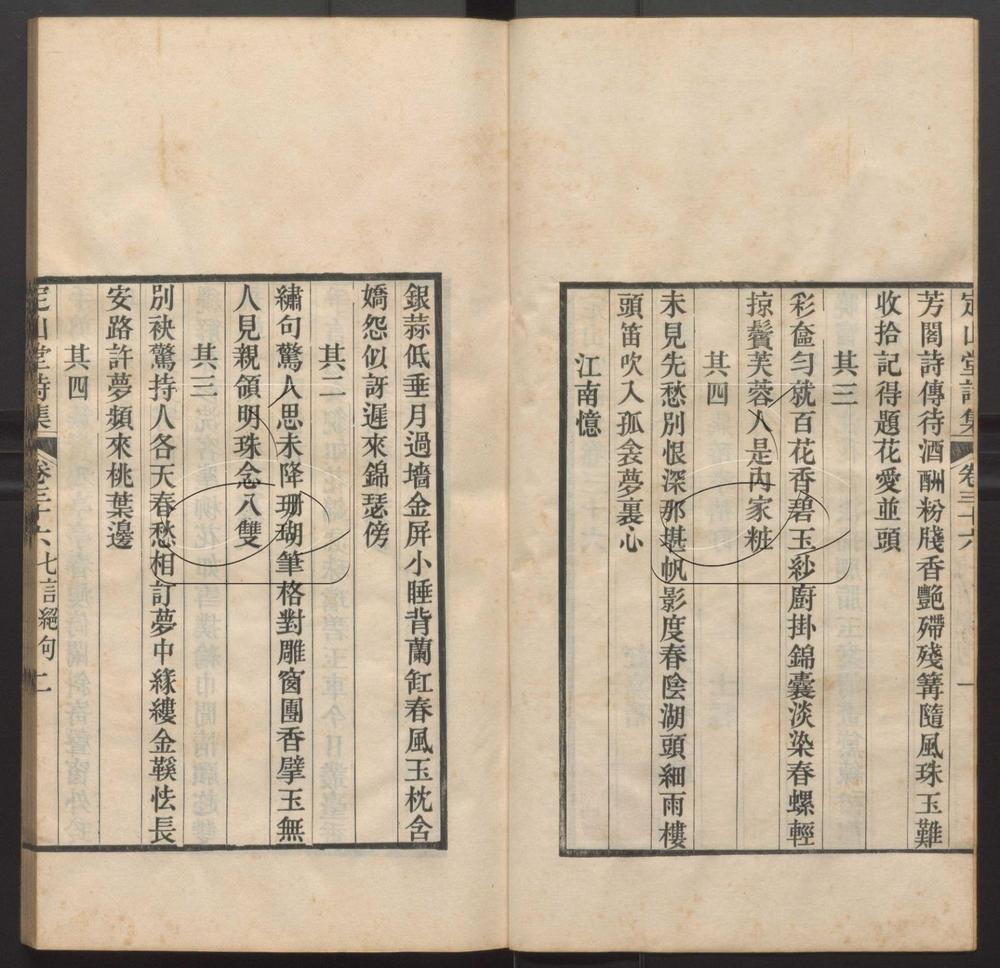 定山堂詩集 卷三十六 一
芳閣詩傳待酒酬粉牋香艷殢殘篝隨風珠玉難
收拾記得題花愛並頭
其三
彩奩勻就百花香碧玉紗廚掛錦囊淡染春螺輕
掠鬢芙蓉人是內家粧
其四
未見先愁別恨深那堪帆影度春陰湖頭細雨樓
頭笛吹入孤衾夢裏心
江南憶
銀蒜低垂月過墻金屏小睡背蘭釭春風玉枕含
嬌怨似訝遲來錦瑟傍
其二
繡句驚人思未降珊瑚筆格對雕窗團香擘玉無
人見親領明珠念八雙
其三
別袂驚持人各天春愁相訂夢中緣縷金鞵怯長
安路許夢頻來桃葉邊
其四
定山堂詩集 卷三十六 七言絕句 二